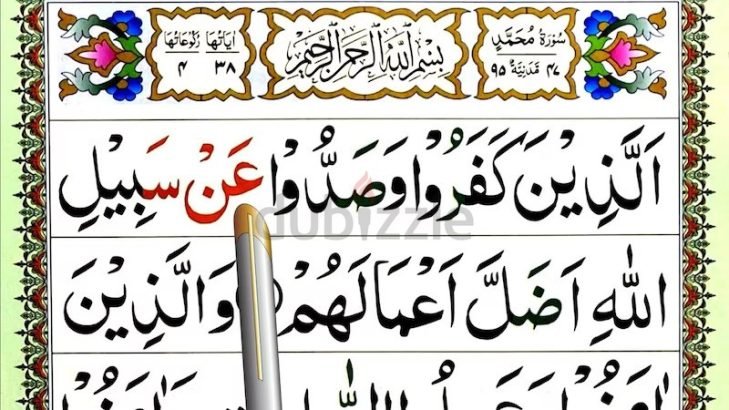 سُوْرَةُ مُحَمَّدٍ
٤٧ مَدَنِيَّةٌ ٩٥
بِسْمِ اللّٰهِ الرَّحْمٰنِ الرَّحِيْمِ
اٰيَاتُهَا رُكُوْعَاتُهَا
٣٨ ٤
اَلَّذِيْنَ كَفَرُوْا وَ صَدُّوْا عَنْ سَبِيْلِ
dubizzle
اللّٰهِ اَضَلَّ اَعْمَالَهُمْ وَالَّذِيْنَ